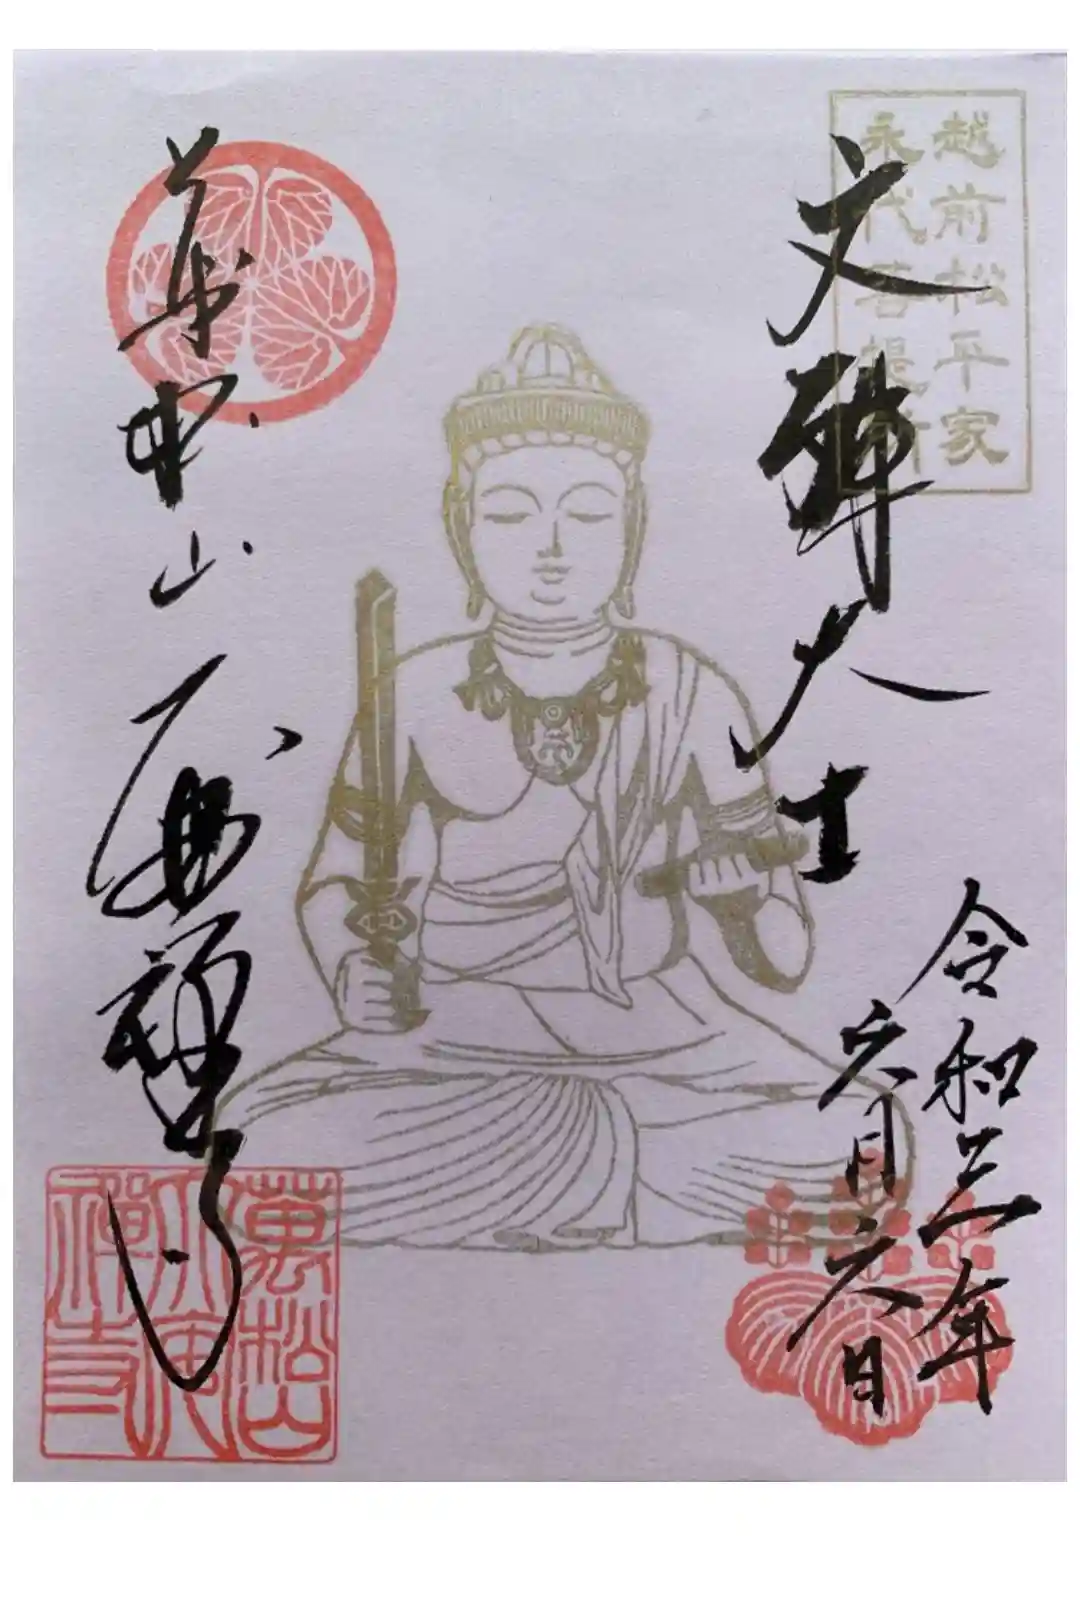 越前松平家
永代菩提所
文殊大士
令和三年
六月六日
萬松山
大安禅寺
萬松山
大安
禪寺